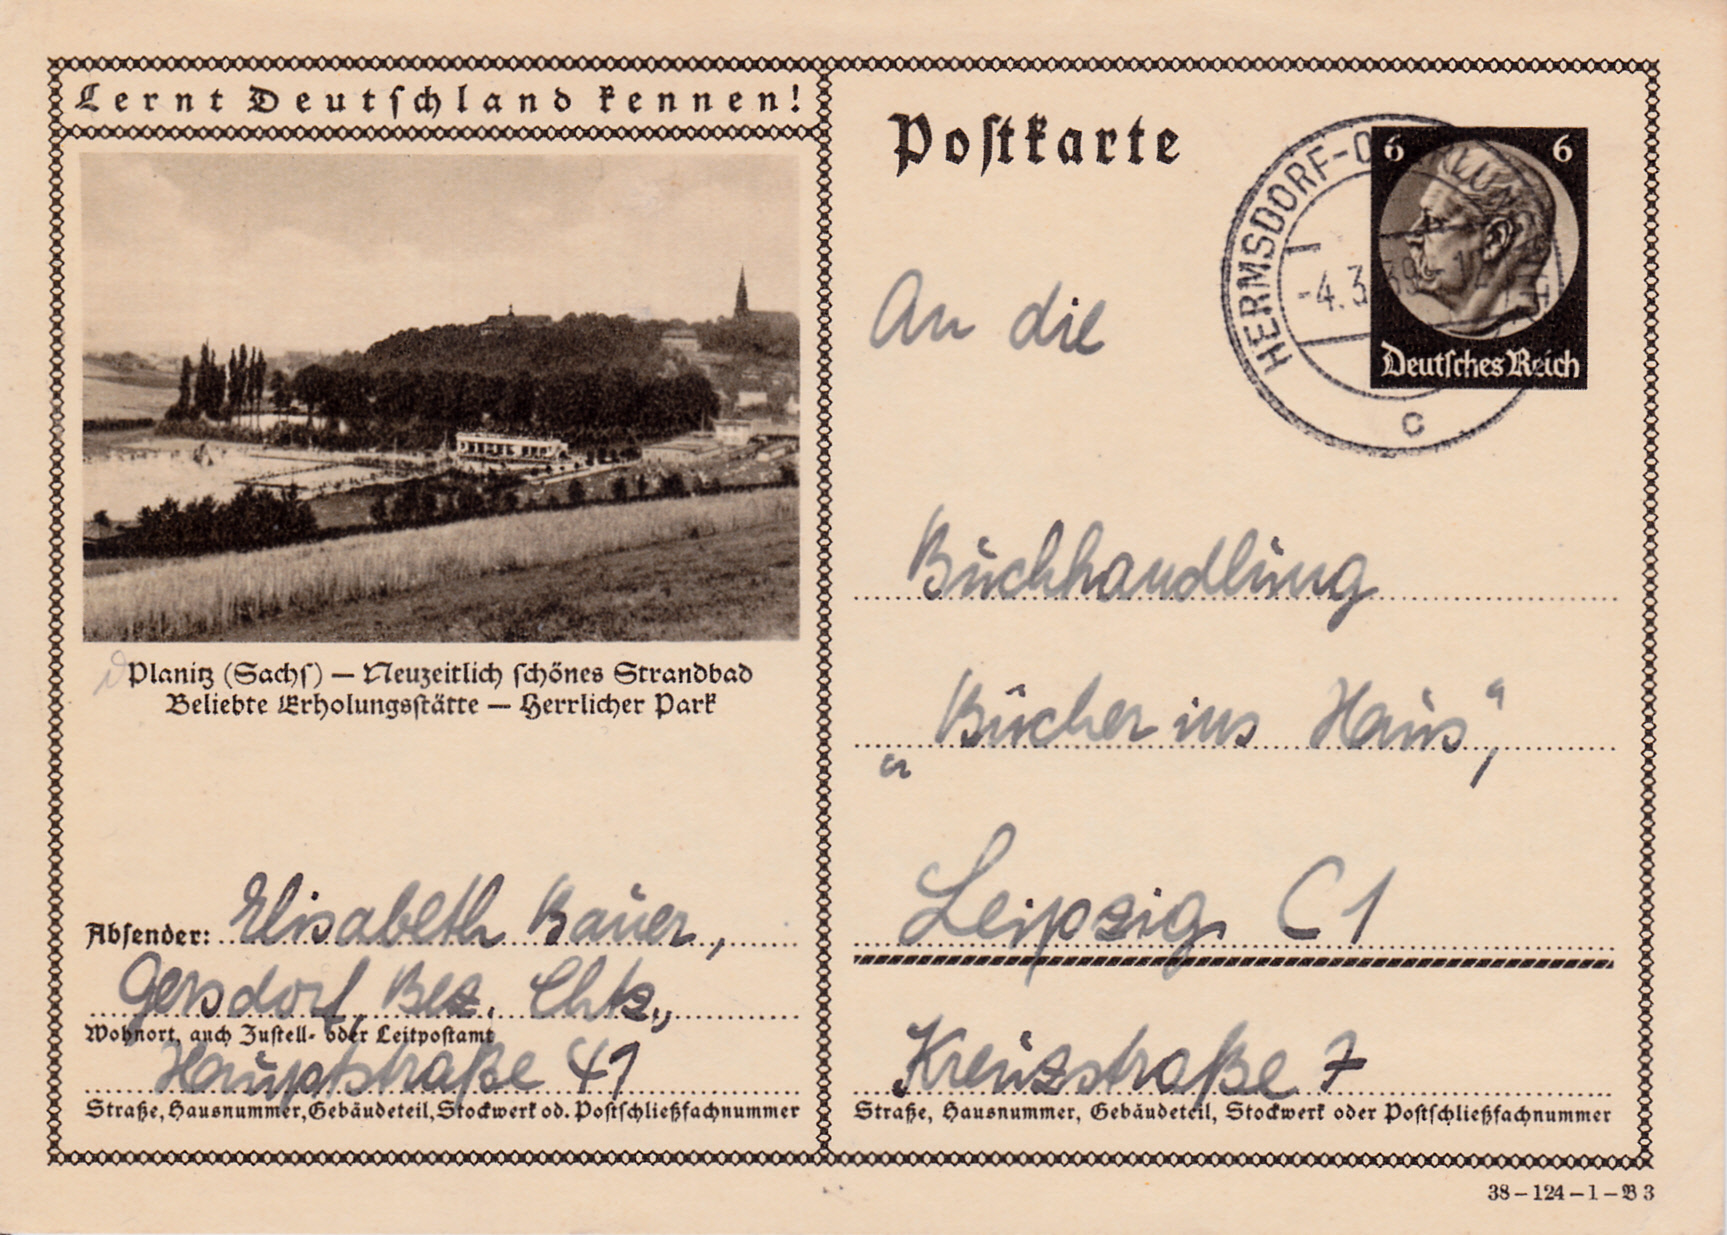 Lernt Deutschland kennen!
Planitz (Sachs) — Neuzeitlich schönes Strandbad
Beliebte Erholungsstätte — Herrlicher Park
Absender: Elisabeth Bauer,
Gersdorf, Bez. Chtz.,
Wohnort, auch Zustell- oder Leitpostamt
Hauptstraße 41
Straße, Hausnummer, Gebäudeteil, Stockwerk od. Postschließfachnummer
Postkarte
HERMSDORF-
-4.3.39
c
6 6
Deutsches Reich
An die
Buchhandlung
„Bücher ins Haus“,
Leipzig C1
Kreuzstraße 7
Straße, Hausnummer, Gebäudeteil, Stockwerk oder Postschließfachnummer
38 – 124 – 1 – B 3